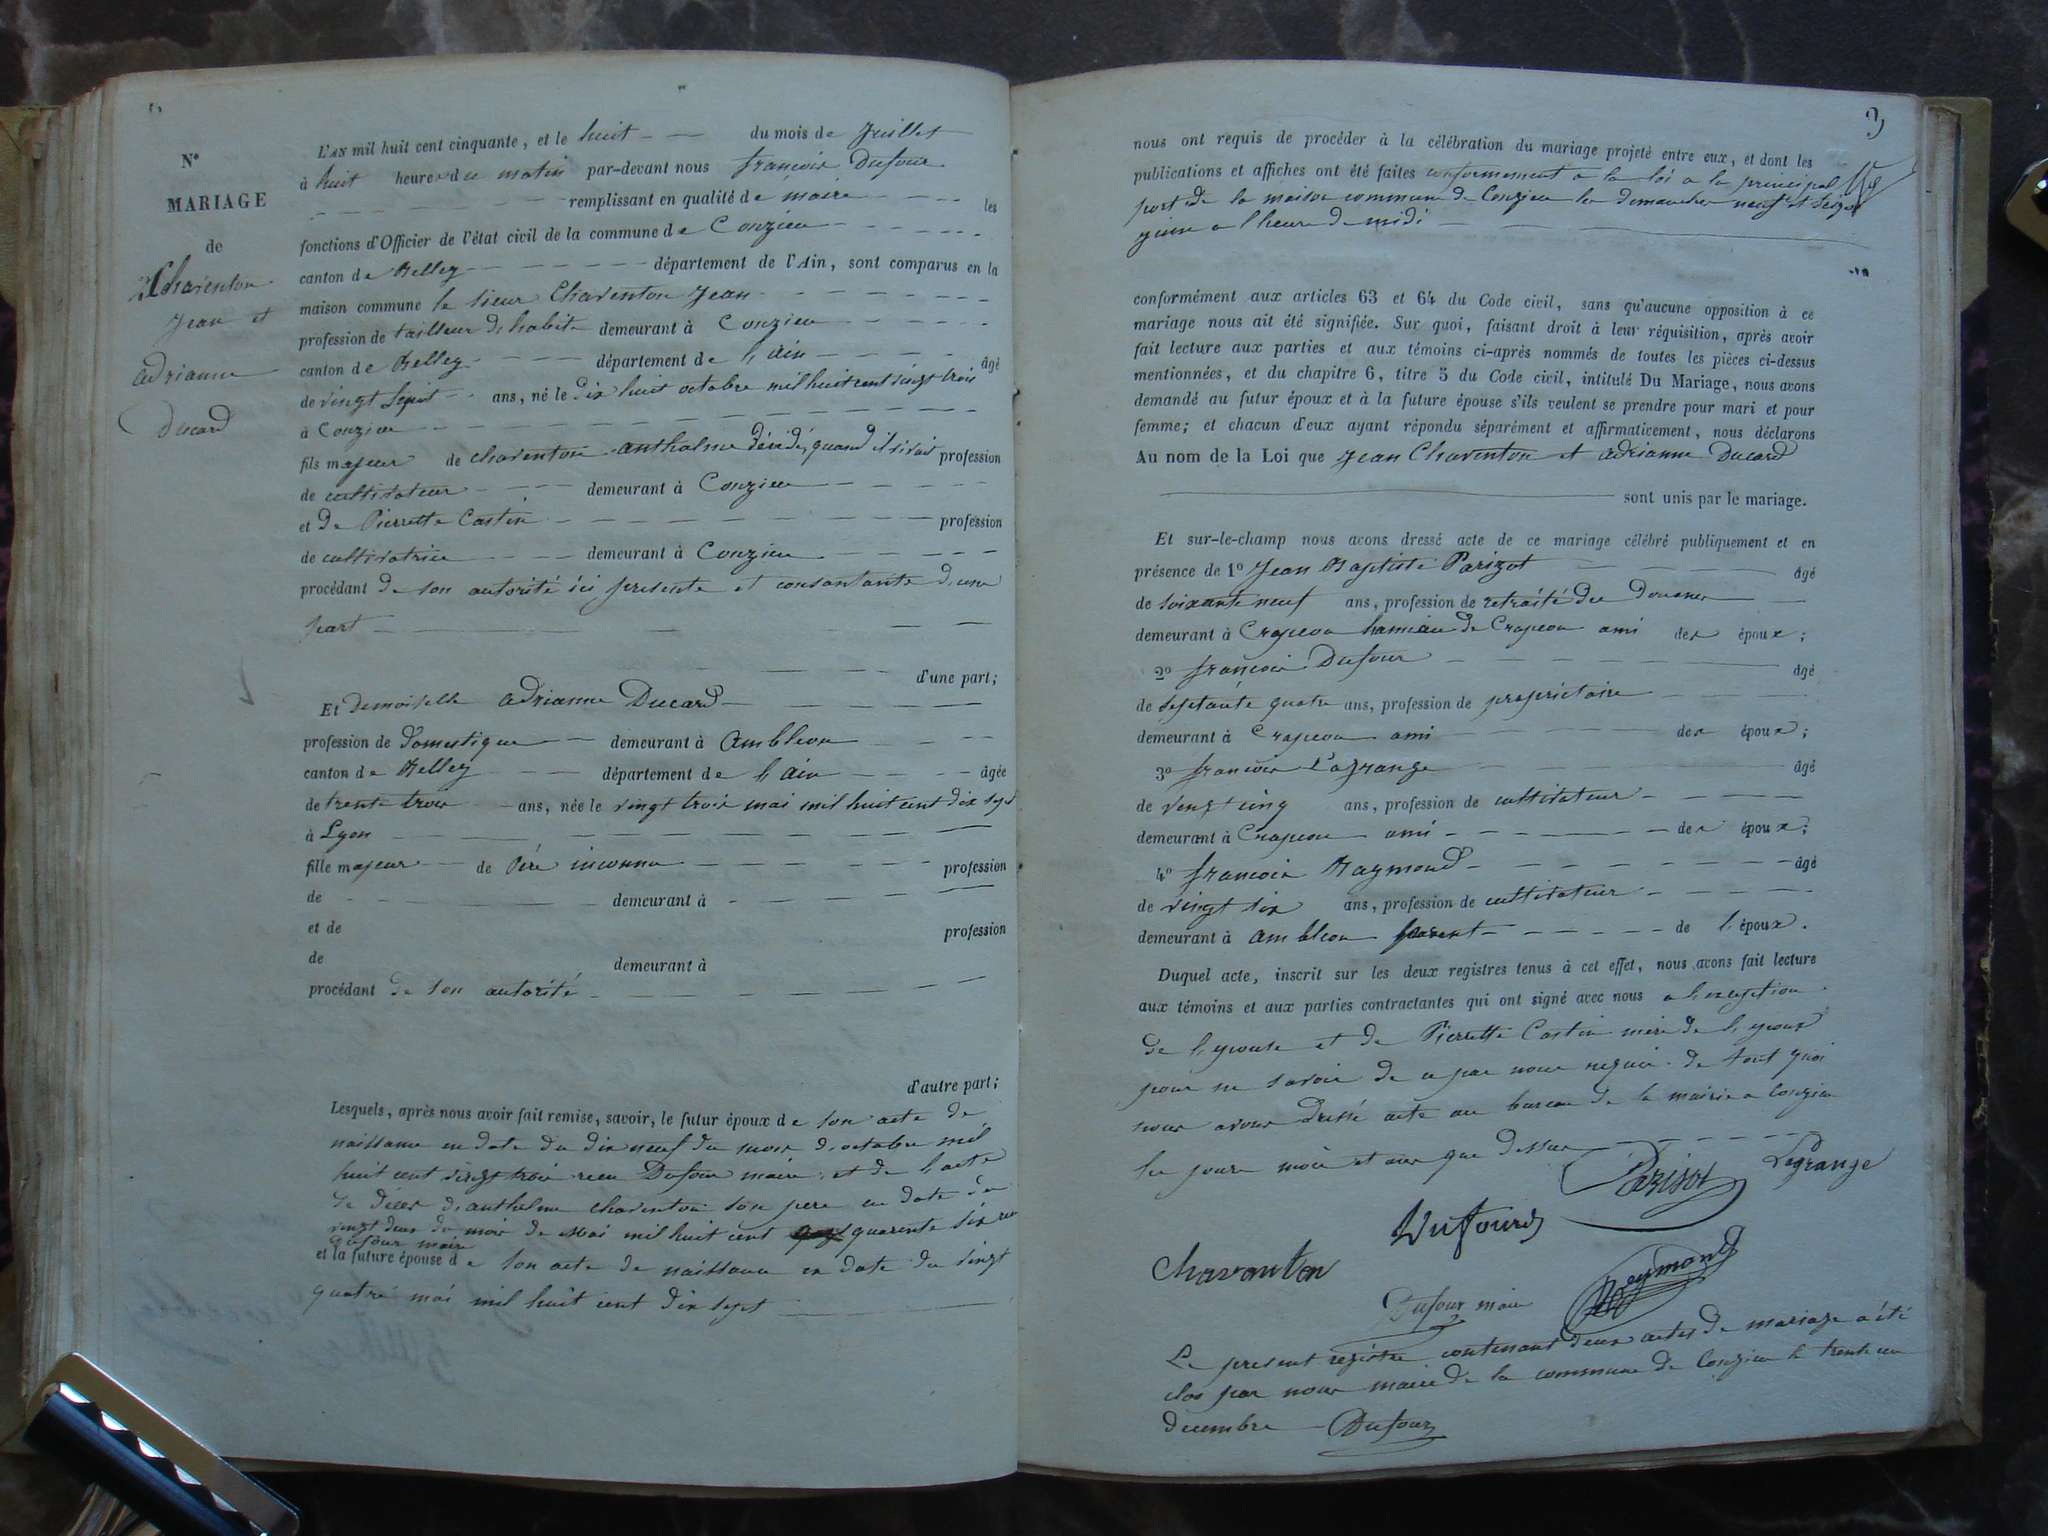 N°
MARIAGE
de
Charenton
Jean et
adrianne
Ducard
L'AN mil huit cent cinquante, et le huit du mois de Juillet
à huit heures du matin par-devant nous françois Dufour
remplissant en qualité de maire les
fonctions d'Officier de l'état civil de la commune de Conzieu
canton de Belley département de l'Ain, sont comparus en la
maison commune le sieur Charenton Jean
profession de tailleur d'habits demeurant à Conzieu
canton de Belley département de l'ain âgé
de vingt sept ans, né le dix huit octobre mil huit cent vingt trois
à Conzieu
fils majeur de charenton anthelme décédé, quand il vivait profession
de cultivateur demeurant à Conzieu
et de Pierrette Castin profession
de cultivatrice demeurant à Conzieu
procédant de son autorité ici presente et consantante d'une
part
d'une part;
Et demoiselle adrianne Ducard
profession de domestique demeurant à ambleon
canton de Belley département de l'ain âgée
de trente trois ans, née le vingt trois mai mil huit cent dix sept
à Lyon
fille majeur de Père inconnu profession
de demeurant à
et de profession
de demeurant à
procédant de son autorité
d'autre part;
Lesquels, après nous avoir fait remise, savoir, le futur époux de son acte de
naissance en date du dix neuf du mois d'octobre mil
huit cent vingt trois recu Dufour maire et de l'acte
de déces d'anthelme charenton son pere en date du
vingt deux du mois de mai mil huit cent quarente six recu
dufour maire
et la future épouse de son acte de naissance en date du vingt
quatre mai mil huit cent dix sept
nous ont requis de procéder à la célébration du mariage projeté entre eux, et dont les
publications et affiches ont été faites conformement a la loi a la principal
porte de la maison commune de Conzieu les dimanches neuf et seize
juin a l'heure de midi
conformément aux articles 63 et 64 du Code civil, sans qu'aucune opposition à ce
mariage nous ait été signifiée. Sur quoi, faisant droit à leur réquisition, après avoir
fait lecture aux parties et aux témoins ci-après nommés de toutes les pièces ci-dessus
mentionnées, et du chapitre 6, titre 5 du Code civil, intitulé Du Mariage, nous avons
demandé au futur époux et à la future épouse s'ils veulent se prendre pour mari et pour
femme; et chacun d'eux ayant répondu séparément et affirmativement, nous déclarons
Au nom de la Loi que Jean Charenton et adrianne Ducard
sont unis par le mariage.
Et sur-le-champ nous avons dressé acte de ce mariage célébré publiquement et en
présence de 1° Jean Baptiste Parizot âgé
de soixante neuf ans, profession de retraité des douanes
demeurant à Crapeou hameau de Crapeou ami des époux;
2° françois Dufour âgé
de septante quatre ans, profession de proprietaire
demeurant à Crapeou ami des époux;
3° françois Lagrange âgé
de vingt cinq ans, profession de cultivateur
demeurant à Crapeou ami des époux;
4° françois Raymond âgé
de vingt six ans, profession de cultivateur
demeurant à ambleon parent de l'époux.
Duquel acte, inscrit sur les deux registres tenus à cet effet, nous avons fait lecture
aux témoins et aux parties contractantes qui ont signé avec nous a l'exception
de l'epouse et de Pierrette Castin mère de l'epoux
pour ne savoir de ce par nous requis de tout quoi
nous avons dressé acte au bureau de la mairie a Conzieu
les jours mois et ans que dessus
Parisot Legrange
Dufour
Charanton
Reymond
Dufour maire
Le present registre contenant deux actes de mariage a été
clos par nous maire de la commune de Conzieu le trente un
decembre Dufour